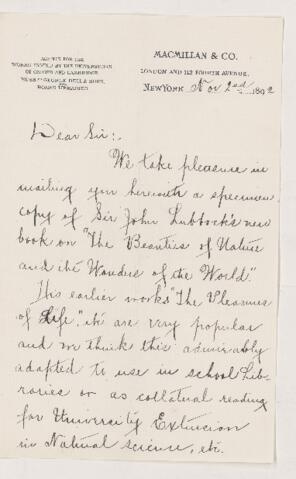 AGENTS FOR THE
MACMILLAN & CO.
LONDON AND 112 FOURTH AVENUE,
NEW YORK Nov 2nd 1892
Dear Sir:-
We take pleasure in
mailing you herewith a specimen
copy of Sir John Lubbock's new
book on "The Beauties of Nature
and the Wonders of the World".
His earlier works "The Pleasures
of Life", etc are very popular
and we think this admirably
adapted to use in school Lib-
raries or as collatural reading
for University Extension
in Natural science, etc.